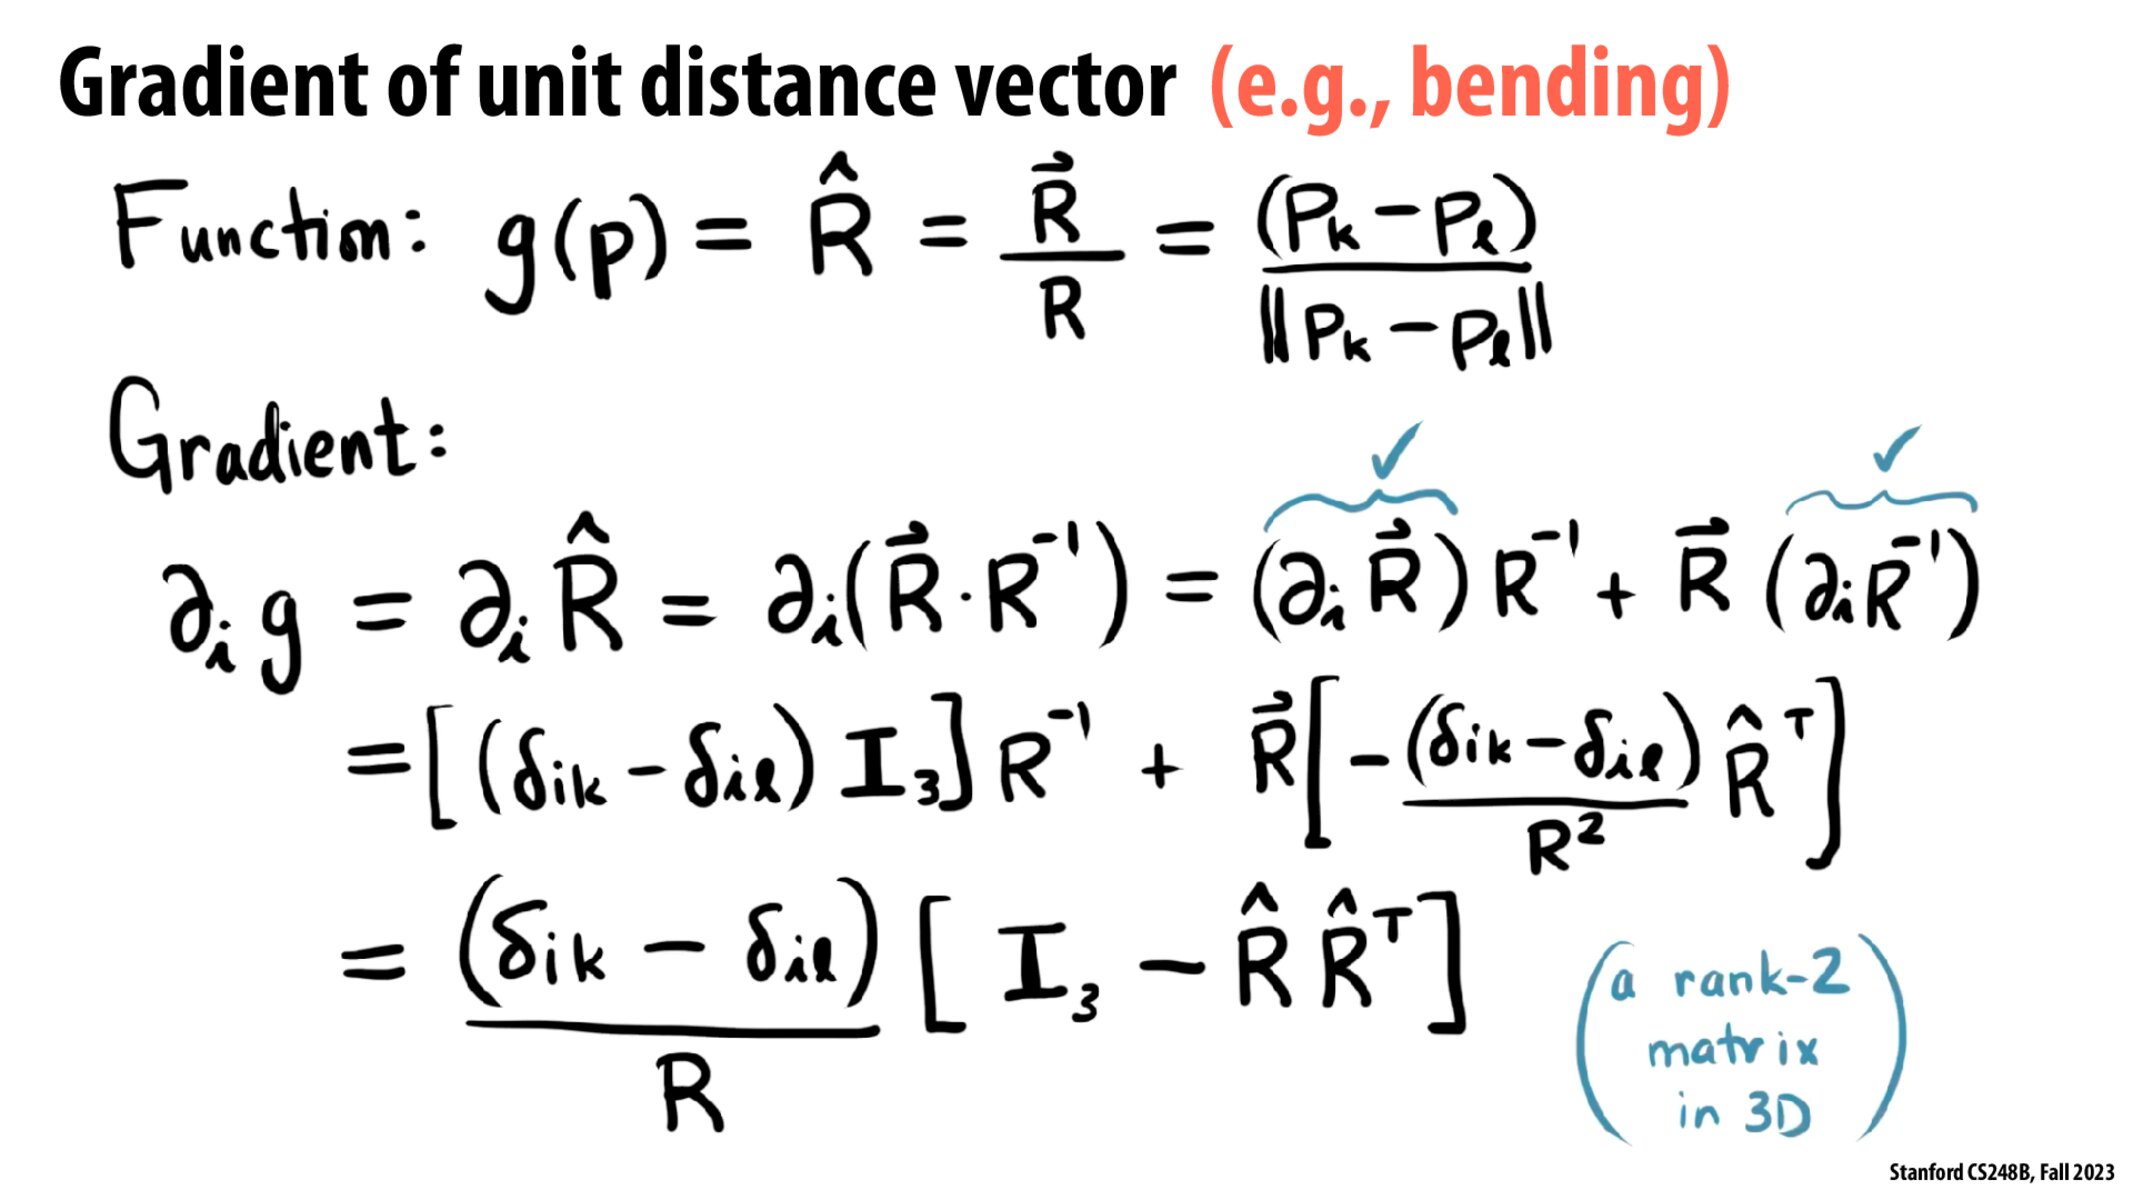 Gradient of unit distance vector (e.g., bending)
Function: g(p) = R̂ = R⃗ / R = (pₖ − pₗ) / ‖pₖ − pₗ‖
Gradient: ✓ ✓
∂ᵢ g = ∂ᵢ R̂ = ∂ᵢ(R⃗ · R⁻¹) = (∂ᵢ R⃗) R⁻¹ + R⃗ (∂ᵢ R⁻¹)
= [(δᵢₖ − δᵢₗ) I₃] R⁻¹ + R⃗ [− (δᵢₖ − δᵢₗ) / R² R̂ᵀ]
= (δᵢₖ − δᵢₗ) / R [I₃ − R̂ R̂ᵀ]
(a rank-2
matrix
in 3D)
Stanford CS248B, Fall 2023